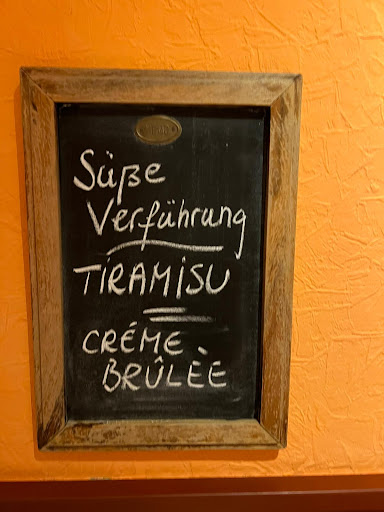 Süße
Verführung
TIRAMISU
CRÉME
BRÛLÈE